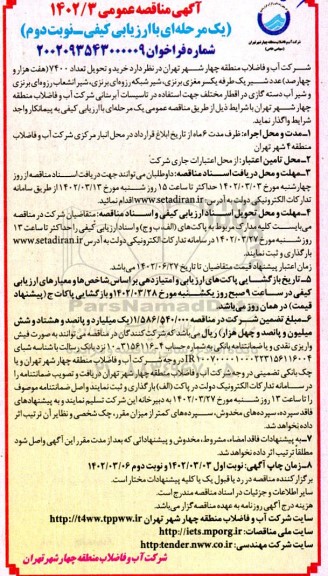 آگهی مناقصه عمومی ۱۴۰۲/۳
(یک مرحله‌ای با ارزیابی کیفی – نوبت دوم)
شماره فراخوان ۲۰۰۲۰۹۳۵۴۳۰۰۰۰۰۹
شرکت آب و فاضلاب منطقه چهار شهر تهران در نظر دارد خرید و تحویل تعداد ۷۴۰۰ (هفت هزار و
چهارصد) عدد شیر یک طرفه یکسر مغزی برنزی، شیر شبکه رزوه‌ای برنزی، شیر انشعاب رزوه‌ای برنزی
و شیر آب دسته گازی در اقطار مختلف جهت استفاده در تاسیسات آبرسانی شرکت آب و فاضلاب منطقه
چهار شهر تهران با شرایط ذیل از طریق مناقصه عمومی یک مرحله‌ای با ارزیابی کیفی به پیمانکار واجد
شرایط واگذار نماید.
۱-مدت و محل اجراء: ظرف مدت ۶ ماه از تاریخ ابلاغ قرارداد در محل انبار مرکزی شرکت آب و فاضلاب
منطقه ۴ شهر تهران
۲-محل تامین اعتبار: از محل اعتبارات جاری شرکت
۳-مهلت و محل دریافت اسناد مناقصه: داوطلبان می‌توانند جهت دریافت اسناد مناقصه از روز
چهارشنبه مورخ ۱۴۰۲/۰۳/۰۳ حداکثر تا ساعت ۱۵ روز شنبه مورخ ۱۴۰۲/۰۳/۱۳ از طریق سامانه
تدارکات الکترونیکی دولت به آدرس www.setadiran.ir اقدام نمایند.
۴-مهلت و محل تحویل اسناد ارزیابی کیفی و اسناد مناقصه: متقاضیان شرکت در مناقصه
می‌بایست کلیه مدارک مربوط به پاکت‌های (الف، ب و ج) و اسناد ارزیابی کیفی را حداکثر تا ساعت ۱۳
روز شنبه مورخ ۱۴۰۲/۰۳/۲۷ در سامانه تدارکات الکترونیکی دولت به آدرس www.setadiran.ir
بارگذاری و ثبت نمایند.
زمان اعتبار پیشنهاد قیمت متقاضیان تا تاریخ ۱۴۰۲/۰۶/۲۷ می‌باشد.
۵-تاریخ بازگشایی پاکت‌های ارزیابی و امتیازدهی بر اساس شاخص‌ها و معیارهای ارزیابی
کیفی در ساعت ۹ صبح روز یکشنبه مورخ ۱۴۰۲/۰۳/۲۸ و بازگشایی پاکات ج (پیشنهاد
قیمت) در همان روز می‌باشد.
۶-مبلغ تضمین شرکت در مناقصه ۱/۵۸۶/۵۴۰/۰۰۰ (یک میلیارد و پانصد و هشتاد و شش
میلیون و پانصد و چهل هزار) ریال می‌باشد که شرکت‌کنندگان در مناقصه می‌توانند به صورت فیش
واریزی نقدی و یا ضمانتنامه بانکی به شماره حساب
در وجه شرکت آب و فاضلاب منطقه چهار شهر تهران و یا
چک بانکی تضمینی در وجه شرکت آب و فاضلاب منطقه چهار شهر تهران دریافت و تصویب ضمانتنامه را
در سامانه تدارکات الکترونیک دولت در پاکت (الف) بارگذاری و ثبت نمایند اصل ضمانتنامه موصوف
را تا ساعت ۱۳ روز شنبه مورخ ۱۴۰۲/۰۳/۲۷ به دبیرخانه این شرکت تسلیم نمایند و به پیشنهادهای
فاقد سپرده، سپرده‌های مخدوش، سپرده‌های کمتر از میزان مقرر، چک شخصی و نظایر آن ترتیب اثر
داده نخواهد شد.
۷-به پیشنهادات فاقد امضاء، مشروط، مخدوش و پیشنهاداتی که بعد از مدت مقرر این آگهی واصل شود
مطلقا ترتیب اثر داده نخواهد شد.
۸-زمان چاپ آگهی: نوبت اول ۱۴۰۲/۰۳/۰۳ و نوبت دوم ۱۴۰۲/۰۳/۰۶
برگزار کننده مناقصه در رد یا قبول یک یا کلیه پیشنهادات مختار است.
سایر اطلاعات و جزئیات در اسناد مناقصه مندرج است.
هزینه درج آگهی روزنامه به عهده مناقصه گزار می‌باشد.
سایت شرکت آب و فاضلاب منطقه چهار شهر تهران http://t4ww.tppww.ir
سایت ملی مناقصات: http://iets.mporg.ir
سایت شرکت مهندسی: http:tender.nww.co.ir
شرکت آب و فاضلاب منطقه چهار شهر تهران